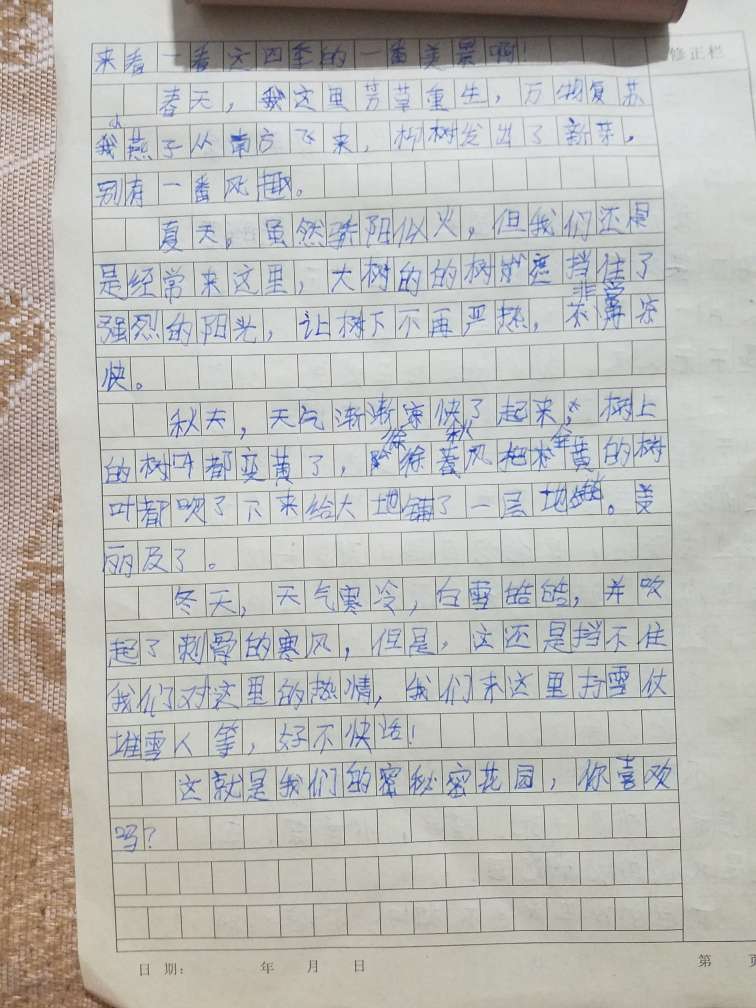 来看一看这四季的一番美景啊！
修正栏
春天，我这里芳草重生，万物复苏
燕子从南方飞来，柳树发出了新芽，
别有一番风趣。
夏天，虽然骄阳似火，但我们还是
是经常来这里，大树的的树挡住了
强烈的阳光，让树下不再严热，非常凉
快。
秋天，天气渐渐凉快了起来，树上
的树叶都变黄了，徐徐秋风把金黄的树
叶都吹了下来给大地铺了一层地毯。美
丽及了。
冬天，天气寒冷，白雪皑皑，并吹
起了刺骨的寒风，但是，这还是挡不住
我们对这里的热情，我们来这里打雪仗
堆雪人等，好不快活！
这就是我们的秘密花园，你喜欢
吗？
日 期： 年 月 日
第 页